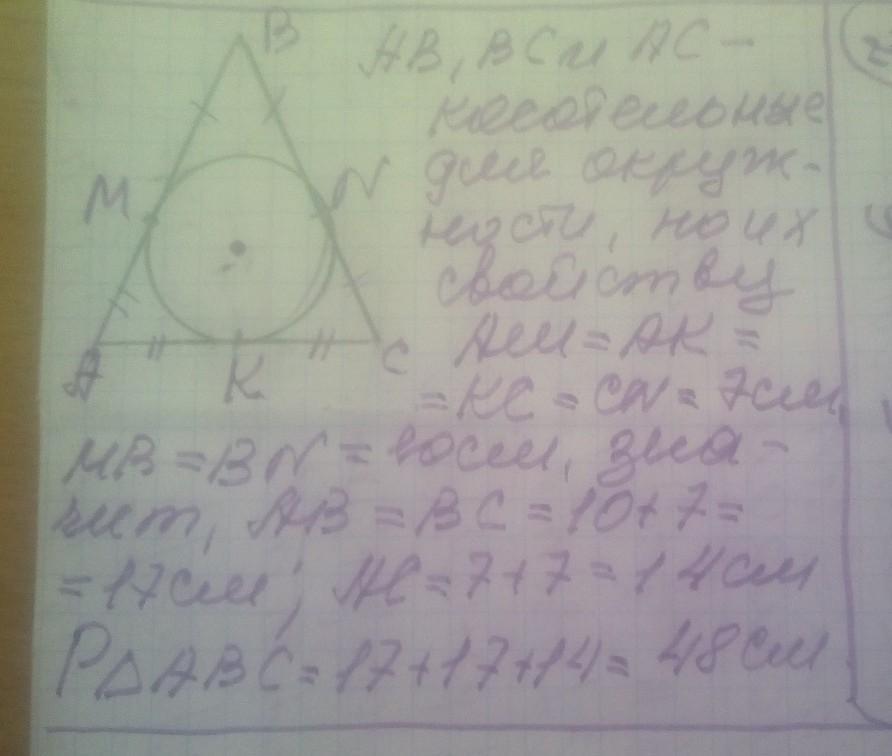 B
AB, BC и AC -
касательные
для окруж-
M
N
ности, по их
свойству
AM = AK =
A
K
C
= KC = CN = 7см,
MB = BN = 10см, зна-
чит, AB = BC = 10+7=
= 17см; AC = 7+7 = 14см
P△ABC = 17+17+14= 48см